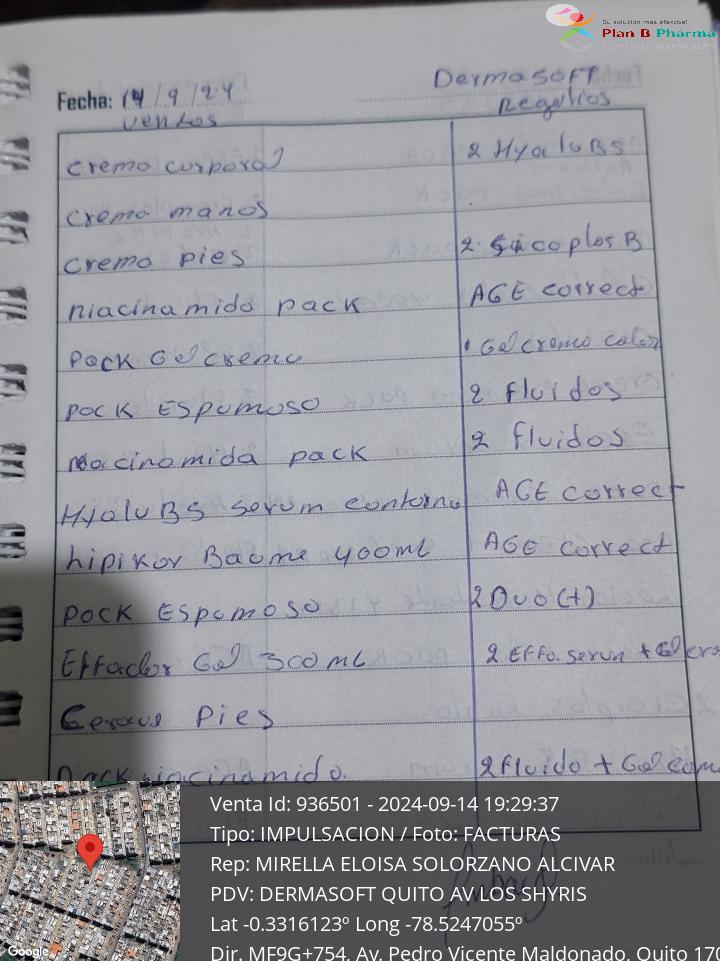 Su solución más efectiva!
Plan B Pharma
Fecha: 14/9/24 Dermasoft
ventas Regalios
crema corporal 2 HyaluBS
crema manos
crema pies 2 Cicaplas B
niacinamida pack AGE correct
Pack Gel crema 1 Gel crema color
pack Espumoso 2 fluidos
niacinamida pack 2 fluidos
HyaluBS serum contorno AGE correct
lipikar Baume 400ml AGE correct
pack Espumoso 2 Duo (+)
Effaclar Gel 300 mL 2 Effa. serun + Gel
Cerave Pies
Pack niacinamida. 2 fluido + Gel
Venta Id: 936501 - 2024-09-14 19:29:37
Tipo: IMPULSACION / Foto: FACTURAS
Rep: MIRELLA ELOISA SOLORZANO ALCIVAR
PDV: DERMASOFT QUITO AV LOS SHYRIS
Lat -0.3316123º Long -78.5247055º
Dir. MF9G+754, Av. Pedro Vicente Maldonado, Quito 170
Google